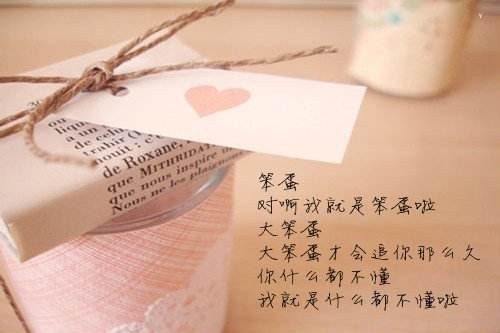 ou
lique
a un
de celui
trahir O
de Roxane,
que MITHRIDAT
que nous inspire
Nous ne les plaignons
笨蛋
对啊我就是笨蛋啦
大笨蛋
大笨蛋才会追你那么久
你什么都不懂
我就是什么都不懂啦